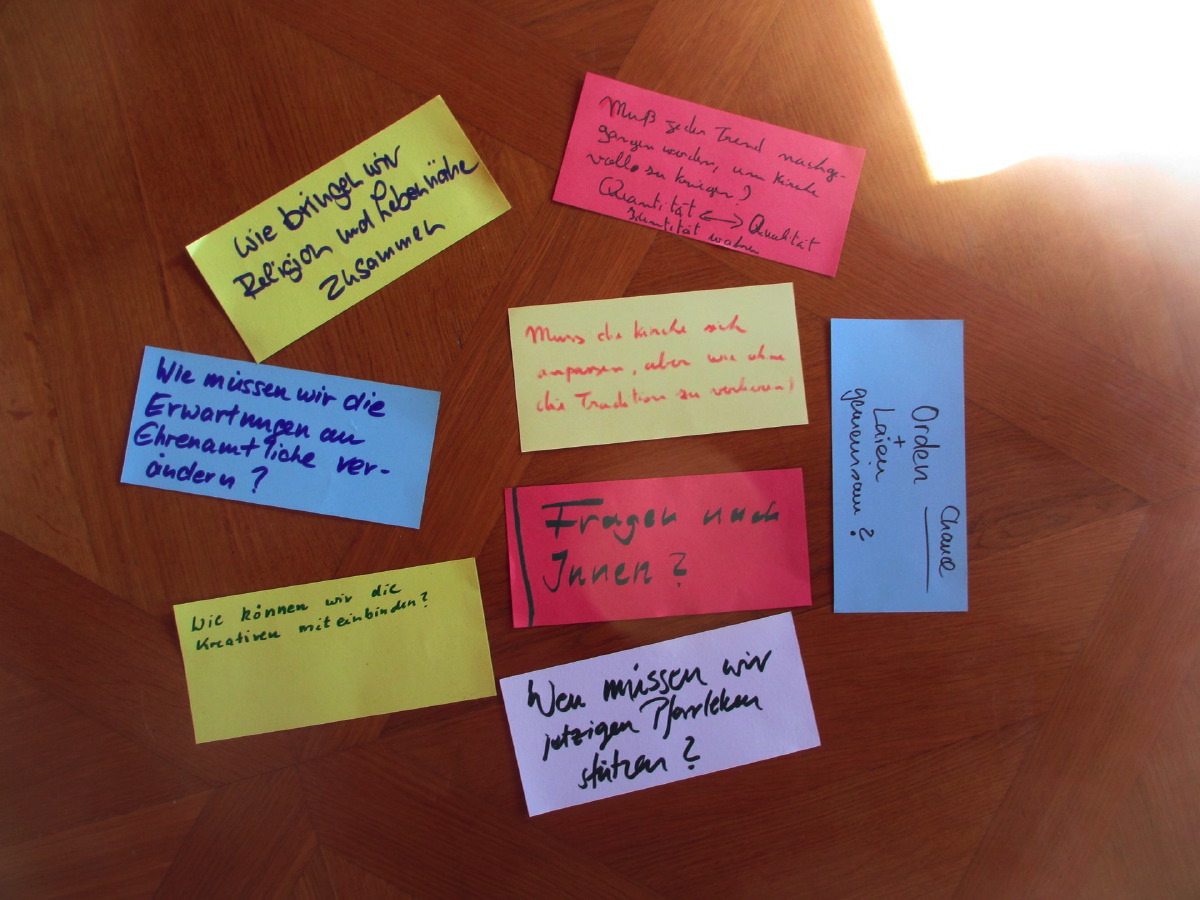 Wie bringen wir
Religion und Lebennähe
zusammen
Muß jeder Trend nachge-
gangen werden, um Kirche
volle zu kriegen?
Quantität ⟷ Qualität
Identität wahren
Muss die Kirche sich
anpassen, aber wie ohne
die Tradition zu verlieren?
Wie müssen wir die
Erwartungen an
Ehrenamtliche ver-
ändern?
Orden
+
Laien
gemeinsam?
Chance
Fragen nach
Innen?
Wie können wir die
Kreativen miteinbinden?
Wen müssen wir
jetzigen Pfarrleben
stützen?